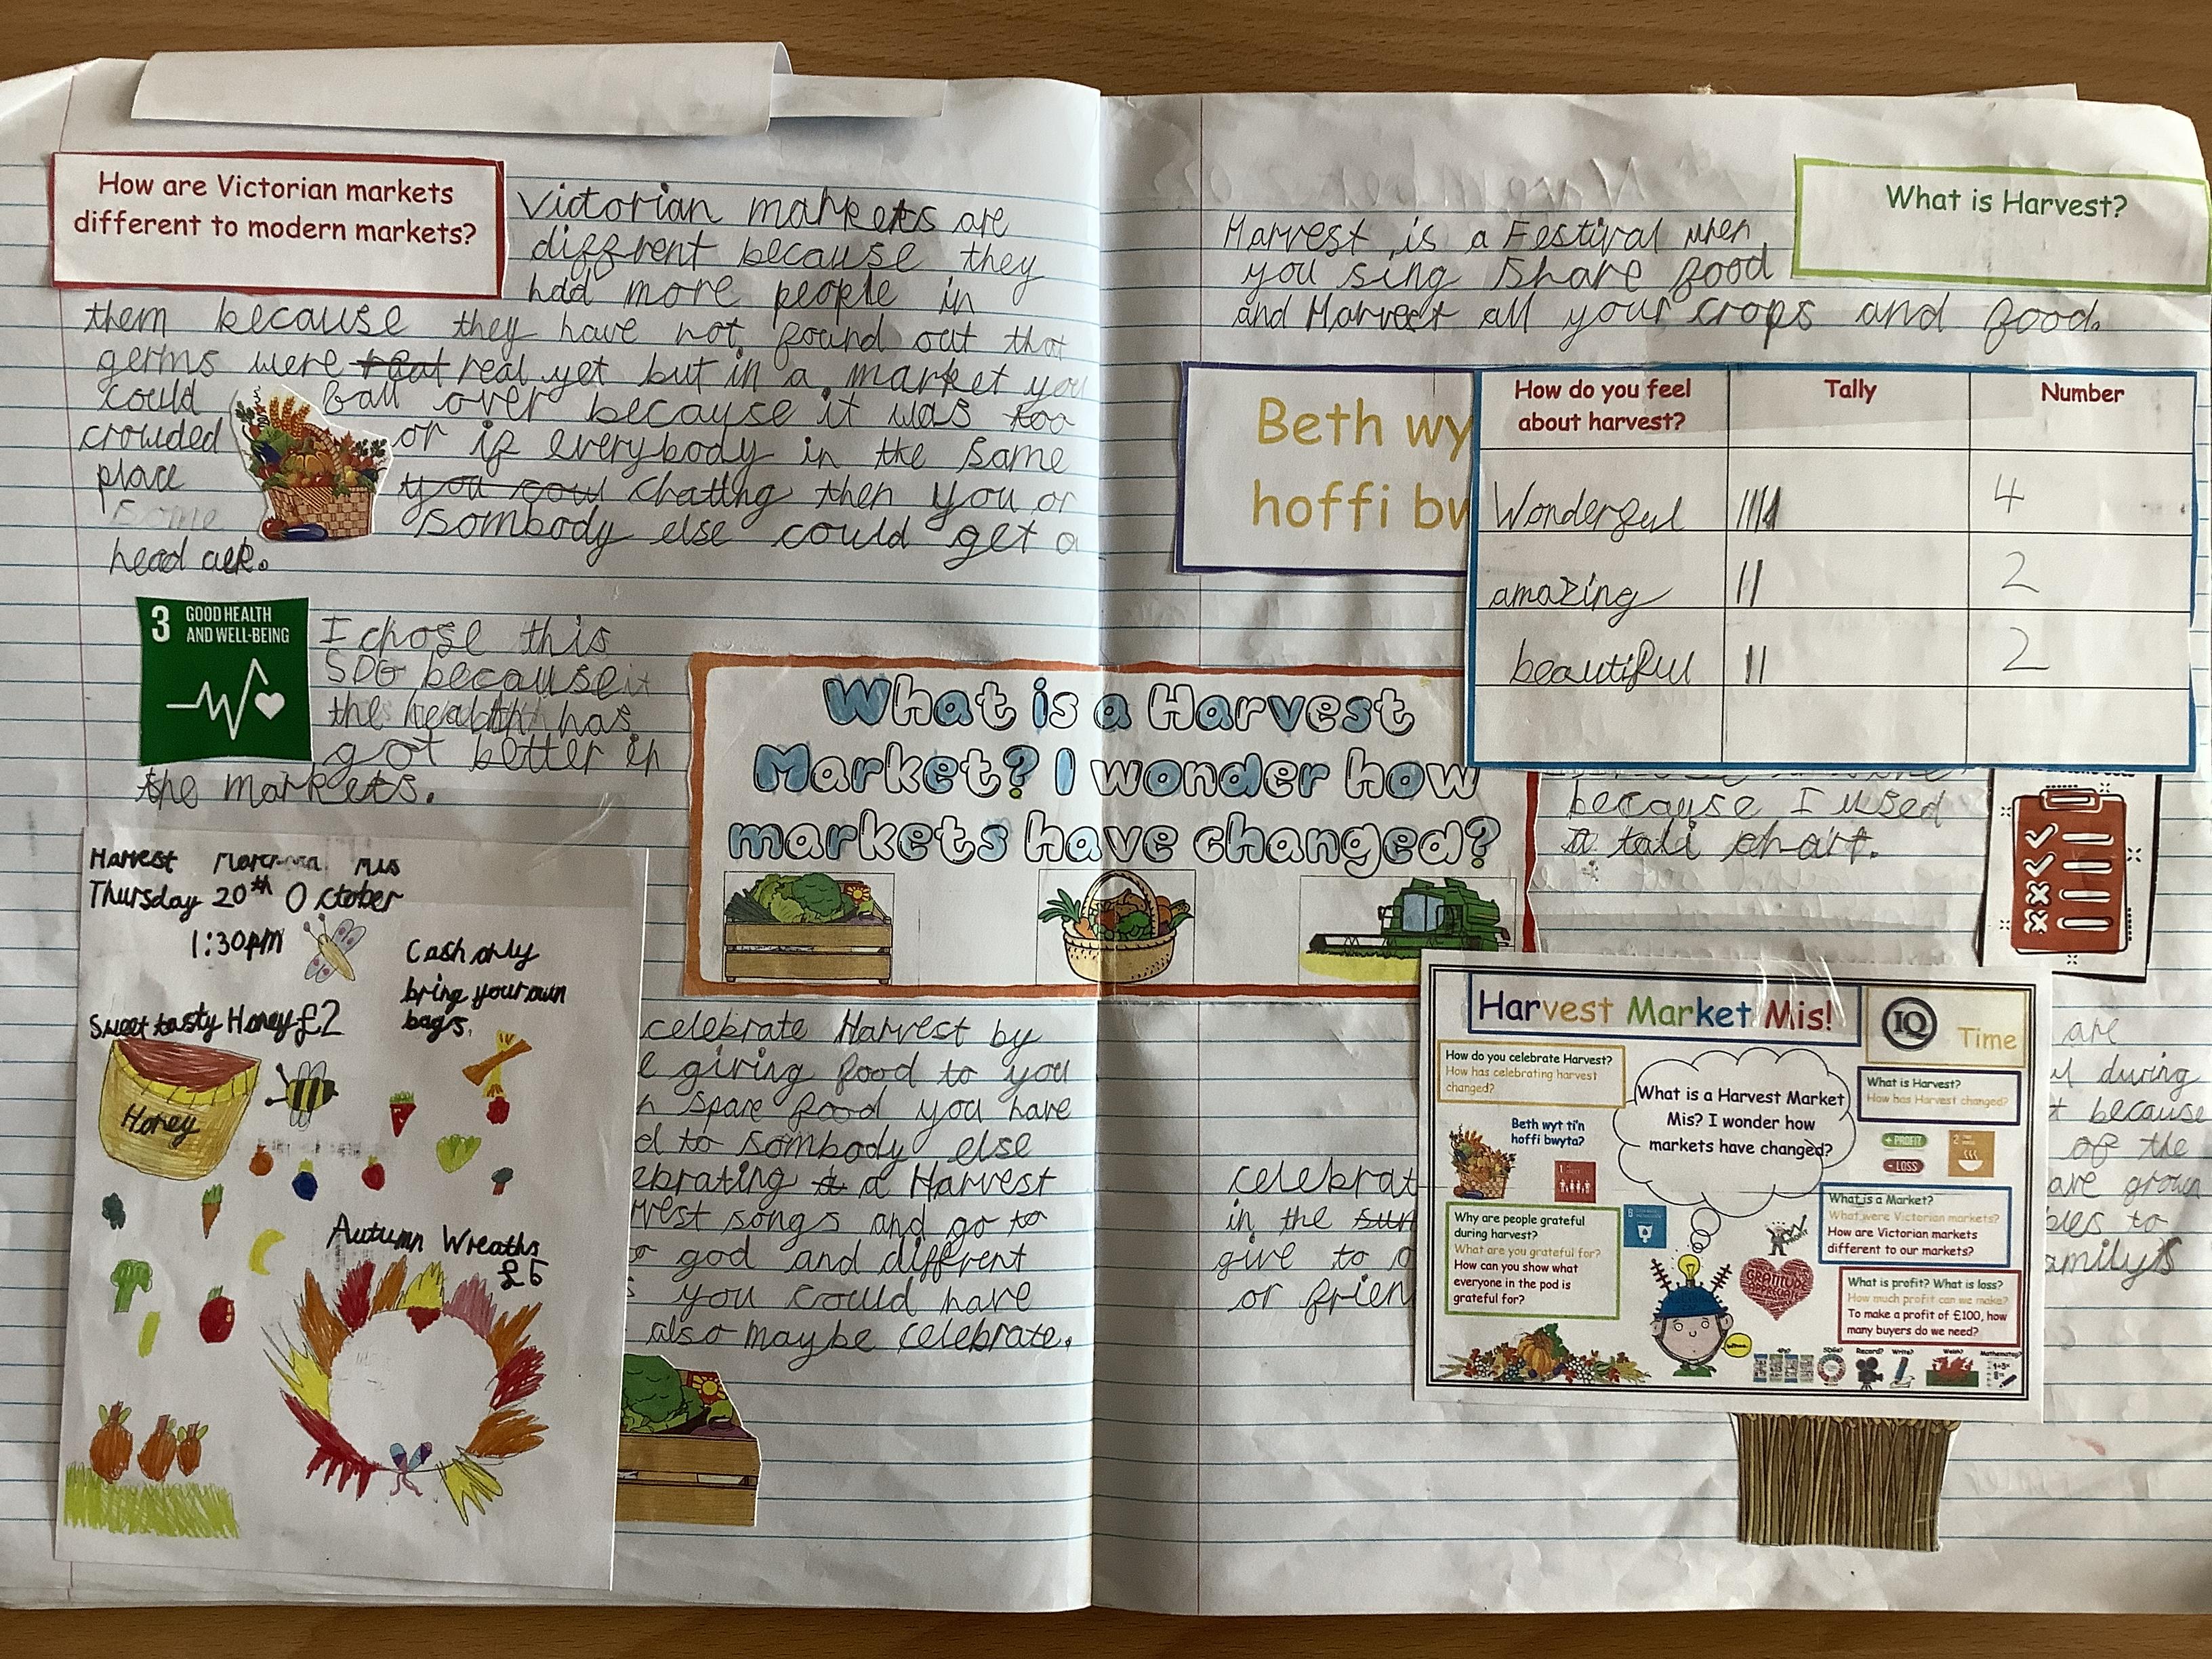 How are Victorian markets
different to modern markets?
Victorian markets are
diffrent because they
had more people in
them because they have not found out that
germs were real yet but in a market you
could fall over because it was too
crowded or if everybody in the same
place you coul chating then you or
some sombody else could get a
head ack.
3 GOOD HEALTH
AND WELL-BEING
I chose this
SDG because it
the health has
got better in
the markets.
Harvest Mis
Thursday 20th October
1:30pm
Cash only
bring your own
bags.
Sweet tasty Honey £2
Honey
Autumn Wreaths
£5
celebrate Harvest by
giving food to you
spare food you have
to sombody else
ebrating a Harvest
songs and go to
god and different
you could have
also maybe celebrate.
What is a Harvest
Market? I wonder how
markets have changed?
What is Harvest?
Harvest is a Festival when
you sing share food
and Harvest all your crops and food.
Beth wy
hoffi bw
How do you feel
about harvest?
Tally
Number
Wonderful 4
amazing 2
beautiful 2
because I used
a tali chart.
celebrat
in the sun
give to
or frien
are
during
because
of the
are grown
to
family's
Harvest Market Mis!
IQ Time
How do you celebrate Harvest?
How has celebrating harvest
changed?
What is a Harvest Market
Mis? I wonder how
markets have changed?
What is Harvest?
How has Harvest changed?
Beth wyt ti'n
hoffi bwyta?
+ PROFIT
- LOSS
Why are people grateful
during harvest?
What are you grateful for?
How can you show what
everyone in the pod is
grateful for?
What is a Market?
What were Victorian markets?
How are Victorian markets
different to our markets?
GRATITUDE
APPRECIATE
What is profit? What is loss?
How much profit can we make?
To make a profit of £100, how
many buyers do we need?
SDGs? Record? Write? Welsh? Mathematics?